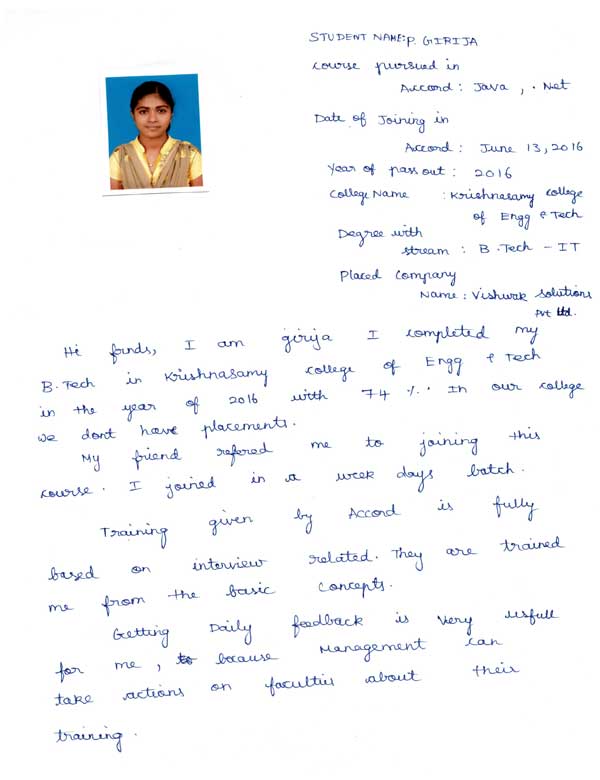 STUDENT NAME: P. GIRIJA
course pursued in
Accord : Java , . Net
Date of Joining in
Accord : June 13, 2016
Year of pass out : 2016
College Name : Krishnasamy college
of Engg & Tech
Degree with
stream : B.Tech - IT
Placed Company
Name : Vishwak Solutions
Pvt Ltd.
Hi frnds, I am girija I completed my
B.Tech in Krishnasamy college of Engg & Tech
in the year of 2016 with 74 %. In our college
we dont have placements.
My friend refered me to joining this
course. I joined in a week days batch.
Training given by Accord is fully
based on interview related. They are trained
me from the basic concepts.
Getting Daily feedback is very usfull
for me, because Management can
take actions on faculties about their
training.